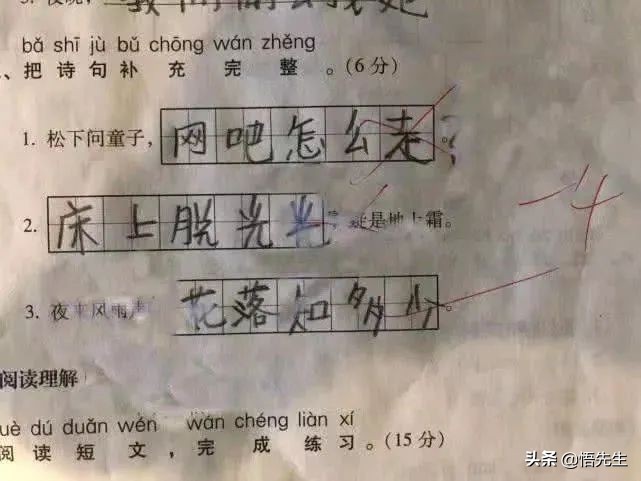 bǎ shī jù bǔ chōng wán zhěng
、把诗句补充完整。(6分)
1. 松下问童子，网吧怎么走。
2. 床上脱光光，疑是地上霜。
3. 夜来风雨声，花落知多少。
-4
阅读理解
uè dú duǎn wén wán chéng liàn xí
阅读短文，完成练习。(15分)
头条 @悟先生